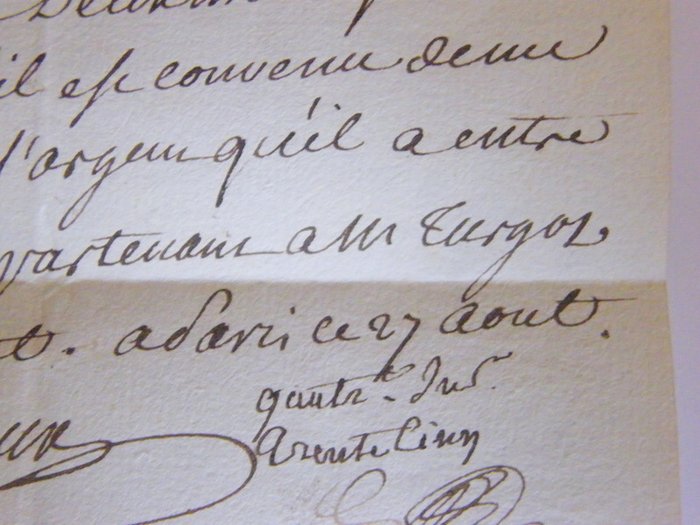 il est convenu de me
l'argent qu'il a entre
partenant a Mr Turgot.
t. a Paris ce 27 aout.
trente cinq